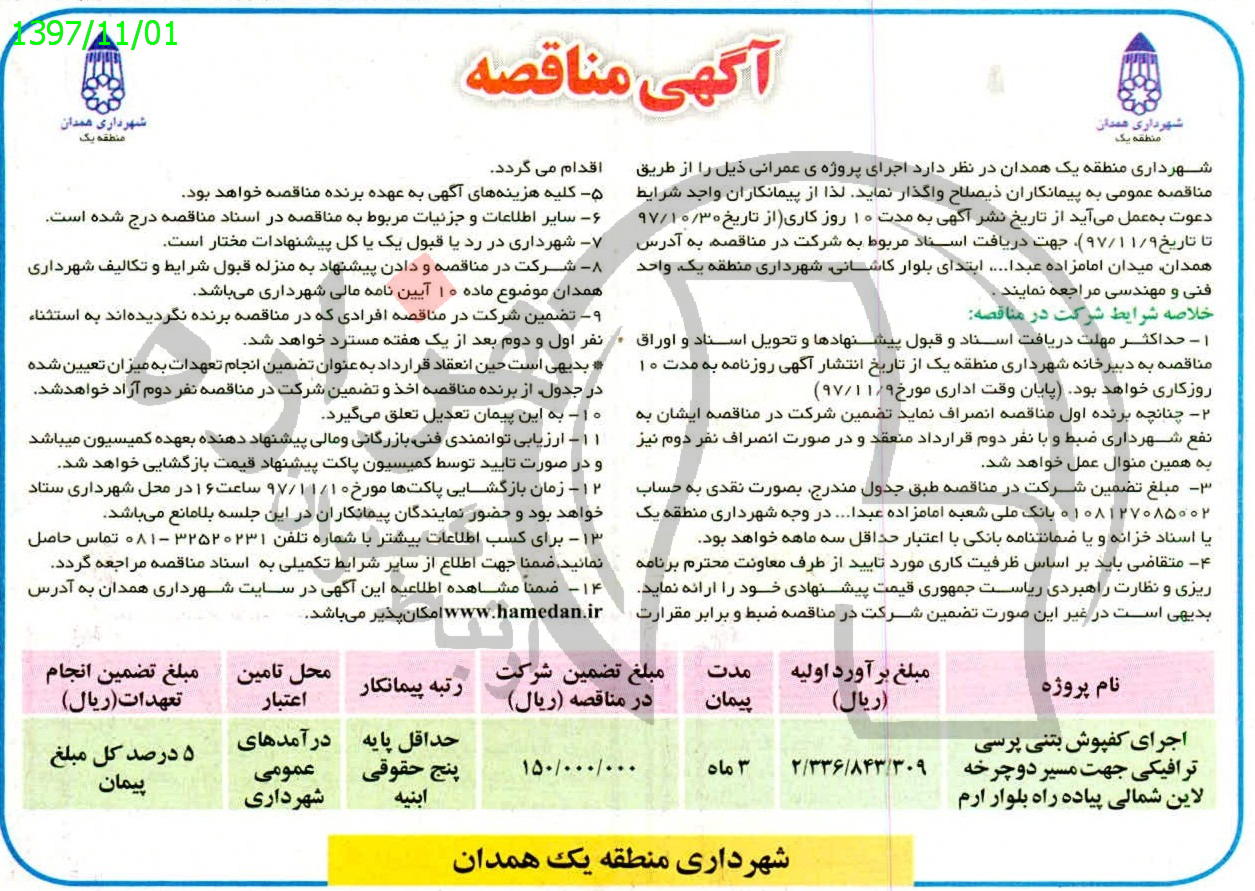 1397/11/01
آگهی مناقصه
شهرداری همدان
منطقه یک
شهرداری همدان
منطقه یک
شهرداری منطقه یک همدان در نظر دارد اجرای پروژه ی عمرانی ذیل را از طریق
مناقصه عمومی به پیمانکاران ذیصلاح واگذار نماید. لذا از پیمانکاران واجد شرایط
دعوت به‌عمل می‌آید از تاریخ نشر آگهی به مدت ۱۰ روز کاری(از تاریخ۹۷/۱۰/۳۰
تا تاریخ۹۷/۱۱/۹)، جهت دریافت اسناد مربوط به شرکت در مناقصه، به آدرس
همدان، میدان امامزاده عبدا...، ابتدای بلوار کاشانی، شهرداری منطقه یک، واحد
فنی و مهندسی مراجعه نمایند .
خلاصه شرایط شرکت در مناقصه:
۱- حداکثر مهلت دریافت اسناد و قبول پیشنهادها و تحویل اسناد و اوراق
مناقصه به دبیرخانه شهرداری منطقه یک از تاریخ انتشار آگهی روزنامه به مدت ۱۰
روزکاری خواهد بود. (پایان وقت اداری مورخ۹۷/۱۱/۹)
۲- چنانچه برنده اول مناقصه انصراف نماید تضمین شرکت در مناقصه ایشان به
نفع شهرداری ضبط و با نفر دوم قرارداد منعقد و در صورت انصراف نفر دوم نیز
به همین منوال عمل خواهد شد.
۳- مبلغ تضمین شرکت در مناقصه طبق جدول مندرج، بصورت نقدی به حساب
۰۱۰۸۱۲۷۰۸۵۰۰۲ بانک ملی شعبه امامزاده عبدا... در وجه شهرداری منطقه یک
یا اسناد خزانه و یا ضمانتنامه بانکی با اعتبار حداقل سه ماهه خواهد بود.
۴- متقاضی باید بر اساس ظرفیت کاری مورد تایید از طرف معاونت محترم برنامه
ریزی و نظارت راهبردی ریاست جمهوری قیمت پیشنهادی خود را ارائه نماید.
بدیهی است در غیر این صورت تضمین شرکت در مناقصه ضبط و برابر مقرارت
اقدام می گردد.
۵- کلیه هزینه‌های آگهی به عهده برنده مناقصه خواهد بود.
۶- سایر اطلاعات و جزئیات مربوط به مناقصه در اسناد مناقصه درج شده است.
۷- شهرداری در رد یا قبول یک یا کل پیشنهادات مختار است.
۸- شرکت در مناقصه و دادن پیشنهاد به منزله قبول شرایط و تکالیف شهرداری
همدان موضوع ماده ۱۰ آیین نامه مالی شهرداری می‌باشد.
۹- تضمین شرکت در مناقصه افرادی که در مناقصه برنده نگردیده‌اند به استثناء
نفر اول و دوم بعد از یک هفته مسترد خواهد شد.
* بدیهی است حین انعقاد قرارداد به عنوان تضمین انجام تعهدات به میزان تعیین شده
در جدول، از برنده مناقصه اخذ و تضمین شرکت در مناقصه نفر دوم آزاد خواهدشد.
۱۰- به این پیمان تعدیل تعلق می‌گیرد.
۱۱- ارزیابی توانمندی فنی،بازرگانی ومالی پیشنهاد دهنده بعهده کمیسیون میباشد
و در صورت تایید توسط کمیسیون پاکت پیشنهاد قیمت بازگشایی خواهد شد.
۱۲- زمان بازگشایی پاکت‌ها مورخ۹۷/۱۱/۱۰ ساعت۱۶در محل شهرداری ستاد
خواهد بود و حضور نمایندگان پیمانکاران در این جلسه بلامانع می‌باشد.
۱۳- برای کسب اطلاعات بیشتر با شماره تلفن ۳۲۵۲۰۲۳۱ -۰۸۱ تماس حاصل
نمائید.ضمنا جهت اطلاع از سایر شرایط تکمیلی به اسناد مناقصه مراجعه گردد.
۱۴- ضمنا مشاهده اطلاعیه این آگهی در سایت شهرداری همدان به آدرس
www.hamedan.ir امکان‌پذیر می‌باشد.
نام پروژه | مبلغ برآورد اولیه (ریال) | مدت پیمان | مبلغ تضمین شرکت در مناقصه (ریال) | رتبه پیمانکار | محل تامین اعتبار | مبلغ تضمین انجام تعهدات(ریال)
اجرای کفپوش بتنی پرسی ترافیکی جهت مسیر دوچرخه لاین شمالی پیاده راه بلوار ارم | ۲/۳۳۶/۸۴۳/۳۰۹ | ۳ ماه | ۱۵۰/۰۰۰/۰۰۰ | حداقل پایه پنج حقوقی ابنیه | درآمدهای عمومی شهرداری | ۵ درصد کل مبلغ پیمان
شهرداری منطقه یک همدان